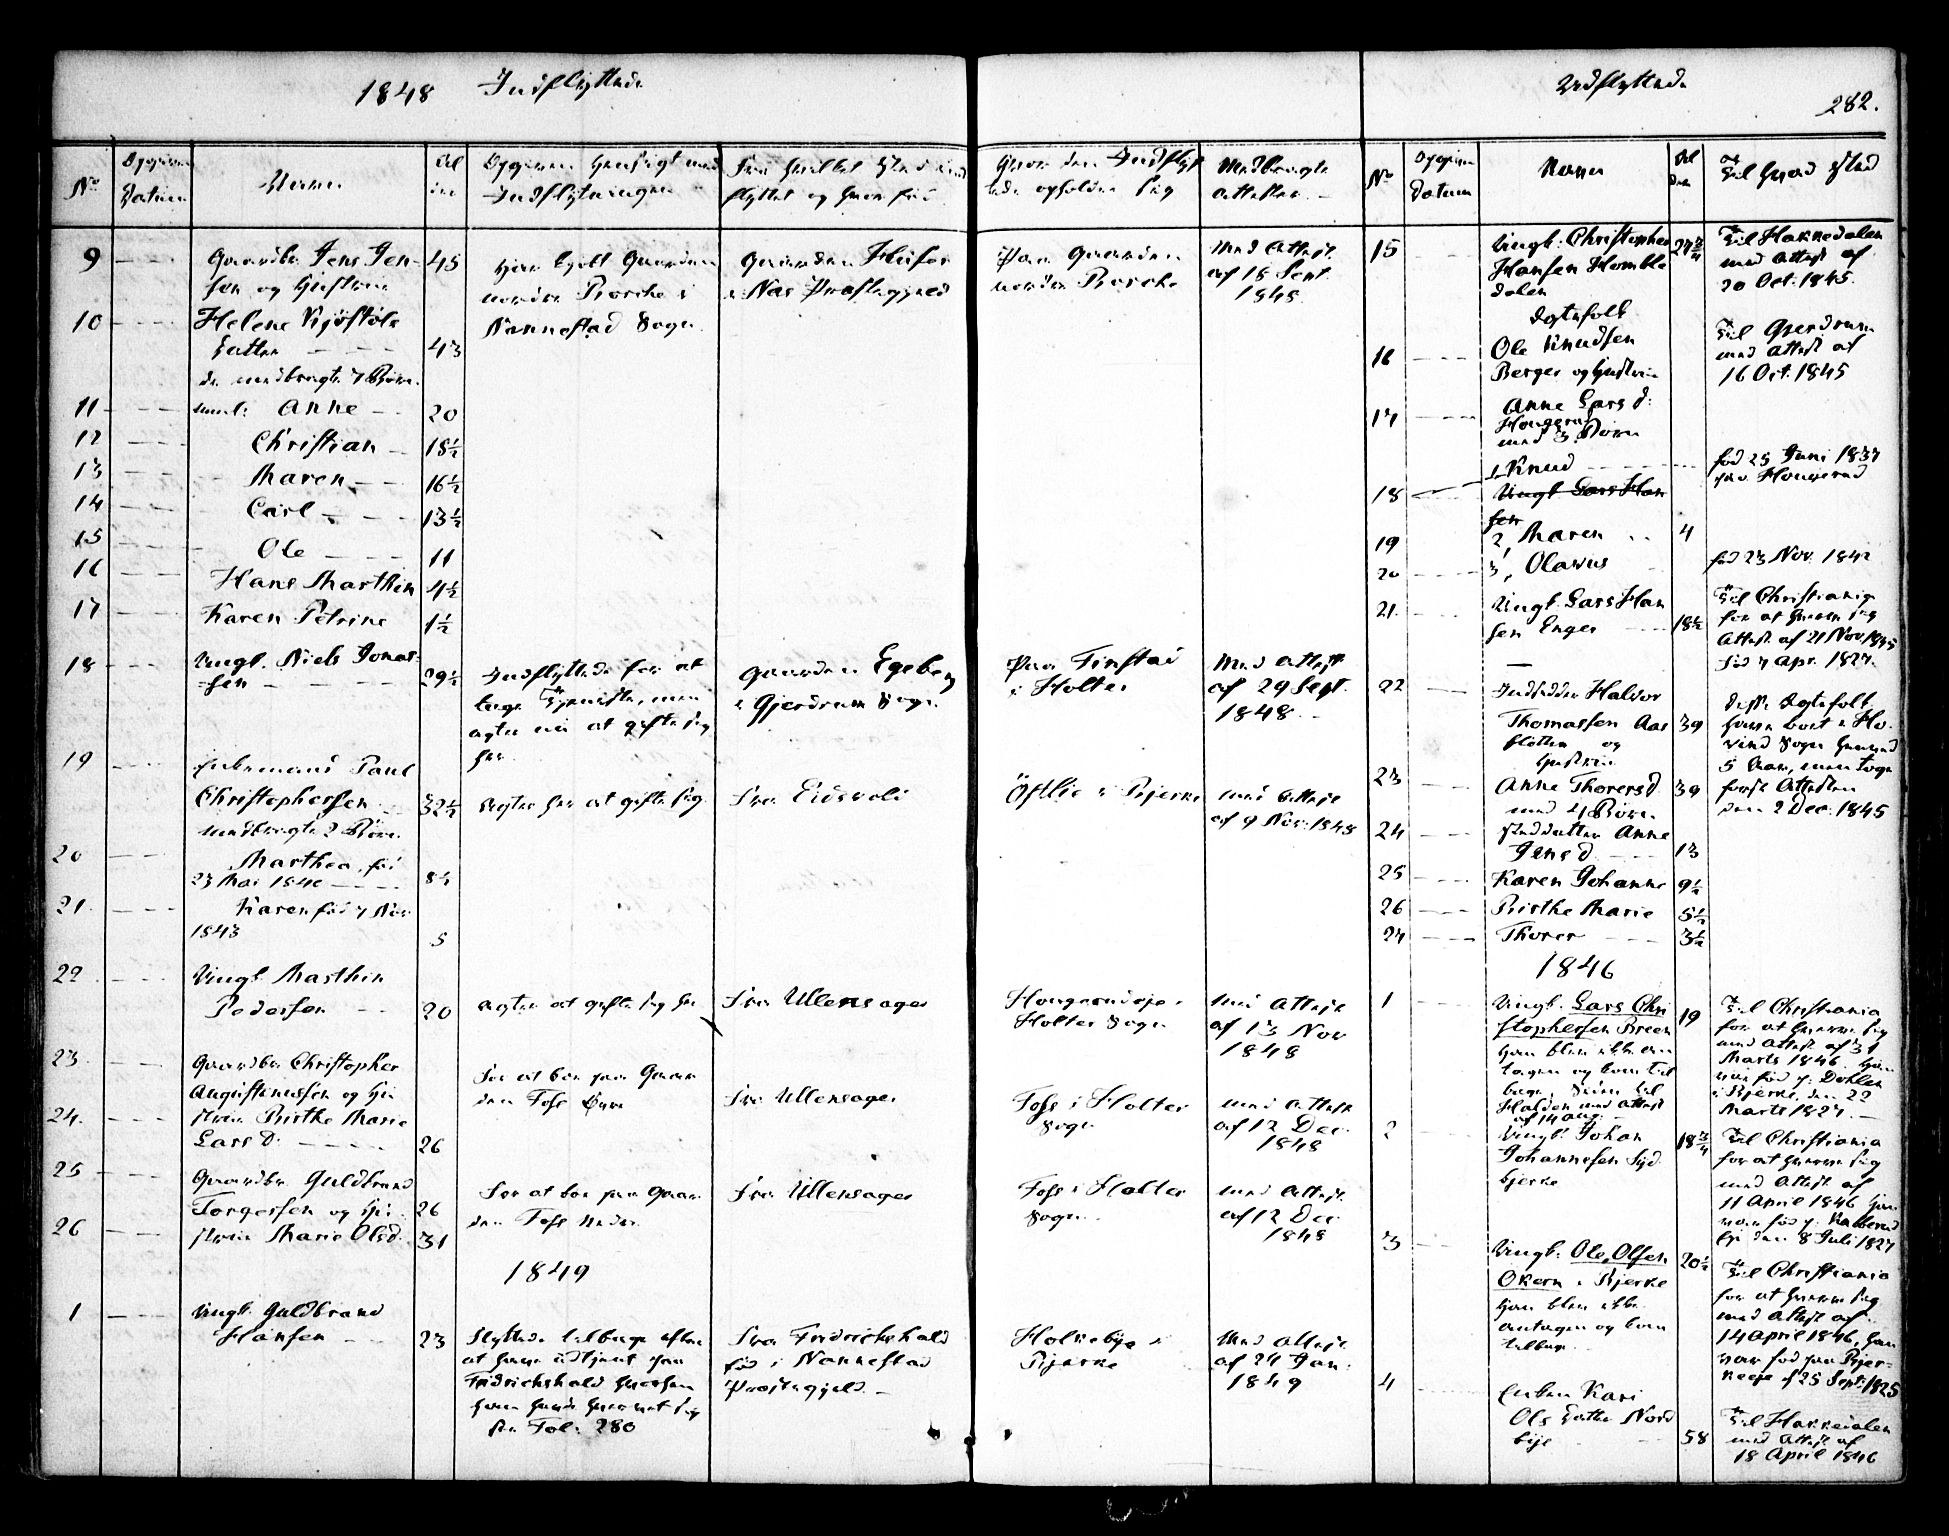 1848 Indflyttede
Udflyttede
282.
No
Datum
Navne
Al
der
Opgiven Hensigt med
Indflytningen
Fra hvilket Sted ind
flyttet og hvor fød
Hvor den Indflyt
tede opholder sig
Medbragte
Attester
No
Datum
Navne
Al
der
Til hvad Sted
9 Gaardbr. Jens Jen- 45
sen og Hustrue
Har kjøbt Gaarden
nordre Rosche i
Nannestad Sogn
Gaarden
i Næs Præstegjeld
Paa Gaarden
nordre Rosche
Med Attest
af 15 Sept.
1848
10 Helene
Datter 43
de medbragte 7 Børn
11 Anne 20
12 Christian 18½
13 Maren 16½
14 Carl 13½
15 Ole 11
16 Hans Marthin 4½
17 Karen Petrine 1½
18 Ungk. Niels Jonas-
sen 29½
Indflyttede for at
tage Tjeneste, men
agter nu at gifte sig
her
Gaarden Egeberg
i Gjerdrum Sogn
Paa Finstad
i Holter
Med Attest
af 29 Sept.
1848
19 Enkemand Paul
Christophersen 32½
medbragte 2 Børn
agter her at gifte sig
Fra Eidsvold
Østlie i Bjerke
med Attest
af 9 Nov. 1848
20 Marthea, fød
23 Mai 1840 8½
21 Karen fød 7 Nov
1843 5
22 Ungk. Marthin
Pedersen 20
agter at gifte sig her
Fra Ullensager
Holter Sogn
med Attest
af 13 Nov
1848
23 Gaardbr. Christopher
Augustinussen og Hu
24 strue Birthe Marie
Lars D. 26
For at boe paa Gaar
den Foss Øvre
Fra Ullensager
Foss i Holter
Sogn
med Attest
af 12 Dec.
1848
25 Gaardbr. Guldbrand
Torgersen og Hu 26
26 strue Marie Olsd. 31
For at boe paa Gaar
den Foss nedre
Fra Ullensager
Foss i Holter
Sogn
med Attest
af 12 Dec
1848
1849
1 Ungk. Guldbrand
Hansen 23
Flyttede tilbage efter
at have udtjent paa
Fredrikshald hvorhen
han havde hvervet sig
Se Fol: 280
Fra Fredrikshald
fød i Nannestad
Præstegjeld
Holkebye i
Bjerke
Med Attest
af 24 Jan.
1849
15 Ungk: Christopher 27¾
Hansen Homble
dalen
Til Hakkedalen
med Attest af
20 Oct. 1845.
Ægtefolk
16 Ole Knudsen
Berger og Hustrue
Til Gjerdrum
med Attest af
16 Oct. 1845
17 Anne Lars d:
Hougerud
med 3 Børn
1, Knud
fød 25 Juni 1837
paa Hougerud
18 Ungk Lars Han
sen
19 2, Maren 4
20 3, Olavus
fød 23 Nov. 1842
21. Ungk. Lars Han
sen Enger 18½
Til Christiania
for at hverve sig
Attest af 21 Nov 1845
fød 7 Apr. 1827.
22 Inderster Halvor
Thomassen Aas 39
sletten og
Hustrue
disse Ægtefolk
have boet i Ho-
vind Sogn henved
5 Aar, men toge
først Attesten
den 2 Dec. 1845
23 Anne Thorersd 39
med 4 Børn
24 Steddatter Anne
Jens D. 13
25 Karen Johanne 9½
26 Birthe Marie 5½
27 Thorer 3½
1846
1 Ungk: Lars Chri 19
stophersen Breen
han blev ikke an
tagen og kom til
bage,
Halden med Attest
af 14 Aug.
Til Christiania
for at hverve sig
med Attest af 31
Marts 1846. han
var fød p. Dohlen
i Bjerke den 22
Marts 1827.
2 Ungk. Johan 18¾
Johannesen Syd
bjerke
Til Christiania
for at hverve sig
med Attest af
11 April 1846 han
var fød p.
eje den 8 Juli 1827
3 Ungk: Ole Olsen 20½
Økern i Bjerke
han blev ikke
antagen og kom
tilbage
Til Christiania
for at hverve sig
med Attest af
14 April 1846, han
var fød paa Bjer-
keeje d 25 Sept. 1825
4 Enken Kari
Ols Datter Nord
bye 58
Til Hakkedalen
med Attest af
18 April 1846